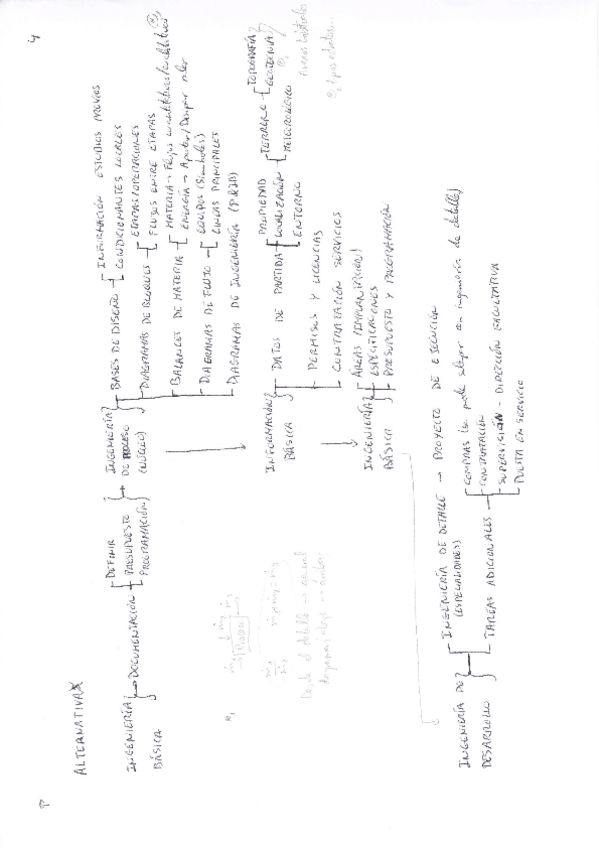 4
ALTERNATIVAX
INGENIERÍA BÁSICA
DOCUMENTACIÓN
DEFINIR
PRESUPUESTO
PROGRAMACIÓN
INGENIERÍA DE PROCESO (NÚCLEO)
BASES DE DISEÑO
INFORMACIÓN ESTUDIOS PREVIOS
CONDICIONANTES LOCALES
DIAGRAMAS DE BLOQUES
ETAPAS/OPERACIONES
FLUJOS ENTRE ETAPAS
BALANCES DE MATERIA
MATERIA → Flujos cuantitativos/cualitativos
ENERGÍA → Aportar/Disipar calor
DIAGRAMAS DE FLUJO
EQUIPOS (Símbolos)
LINEAS PRINCIPALES
DIAGRAMAS DE INGENIERÍA (P&ID)
INFORMACIÓN BÁSICA
DATOS DE PARTIDA
PROPIEDAD
LOCALIZACIÓN
ENTORNO
TERRENO
TOPOGRAFÍA
GEOTECNIA
METEOROLÓGICO
PERMISOS Y LICENCIAS
CONTRATACIÓN SERVICIOS
INGENIERÍA BÁSICA
ÁREAS (IMPLANTACIÓN)
ESPECIFICACIONES
PRESUPUESTO Y PROGRAMACIÓN
Desde el detalle → general
INGENIERÍA DE DESARROLLO
INGENIERÍA DE DETALLE → PROYECTO DE EJECUCIÓN
(ESPECIALIDADES)
TAREAS ADICIONALES
COMPRAS (se puede solapar en ingeniería de detalle)
CONTRATACIÓN
SUPERVISIÓN - DIRECCIÓN FACULTATIVA
PUESTA EN SERVICIO